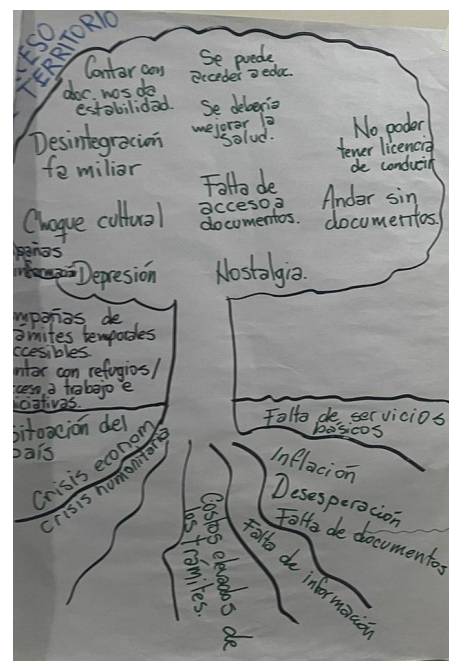 CESO
TERRITORIO
Contar con
doc. nos da
estabilidad.
Se puede
acceder a educ.
Se debería
mejorar la
Salud.
No poder
tener licencia
de conducir
Desintegración
familiar
Falta de
acceso a
documentos.
Andar sin
documentos.
Choque cultural
pañas
Depresión
Nostalgia.
mpañas de
ámites temporales
ccesibles.
ntar con refugios/
ceso a trabajo e
iciativas.
situación del
país
Crisis econom
Crisis humanitaria
Costos elevados de
los trámites.
Falta de información
Falta de servicios
básicos
Inflación
Desesperación
Falta de documentos